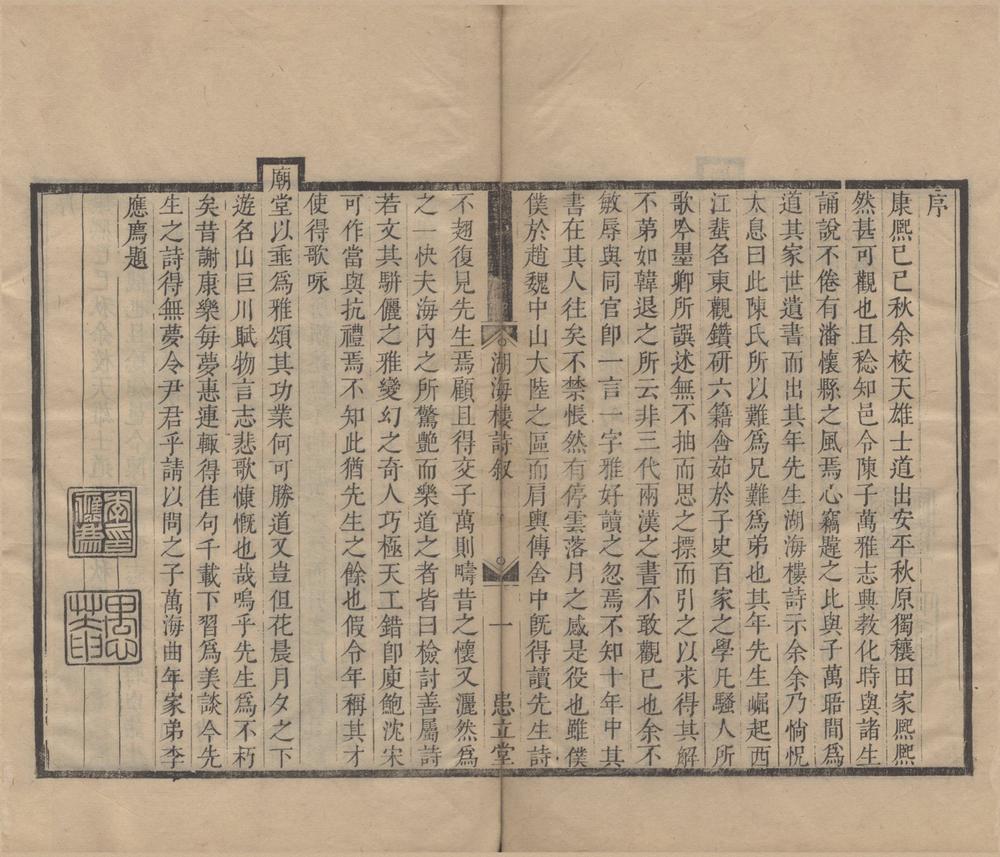 序
康熙己巳秋余校天雄士道出安平秋原獨穫田家熙熙
然甚可觀也且稔知邑令陳子萬雅志典教化時與諸生
誦說不倦有潘懷縣之風焉心竊韙之比與子萬晤間爲
道其家世遺書而出其年先生湖海樓詩示余余乃惝怳
太息曰此陳氏所以難爲兄難爲弟也其年先生崛起西
江蜚名東觀鑽研六籍含茹於子史百家之學凡騷人所
歌吟墨卿所譔述無不抽而思之摽而引之以求得其解
不弟如韓退之所云非三代兩漢之書不敢觀已也余不
敏辱與同官卽一言一字雅好讀之忽焉不知十年中其
書在其人往矣不禁悵然有停雲落月之感是役也雖僕
僕於趙魏中山大陸之區而肩輿傳舍中旣得讀先生詩
湖海樓詩叙
一
患立堂
不翅復見先生焉顧且得交子萬則疇昔之懷又灑然爲
之一快夫海內之所驚艷而樂道之者皆曰檢討善屬詩
若文其駢儷之雅變幻之奇人巧極天工錯卽庾鮑沈宋
可作當與抗禮焉不知此猶先生之餘也假令年稱其才
使得歌咏
廟堂以垂爲雅頌其功業何可勝道又豈但花晨月夕之下
遊名山巨川賦物言志悲歌慷慨也哉嗚乎先生爲不朽
矣昔謝康樂每夢惠連輒得佳句千載下習爲美談今先
生之詩得無夢令尹君乎請以問之子萬海曲年家弟李
應廌題
李應廌印